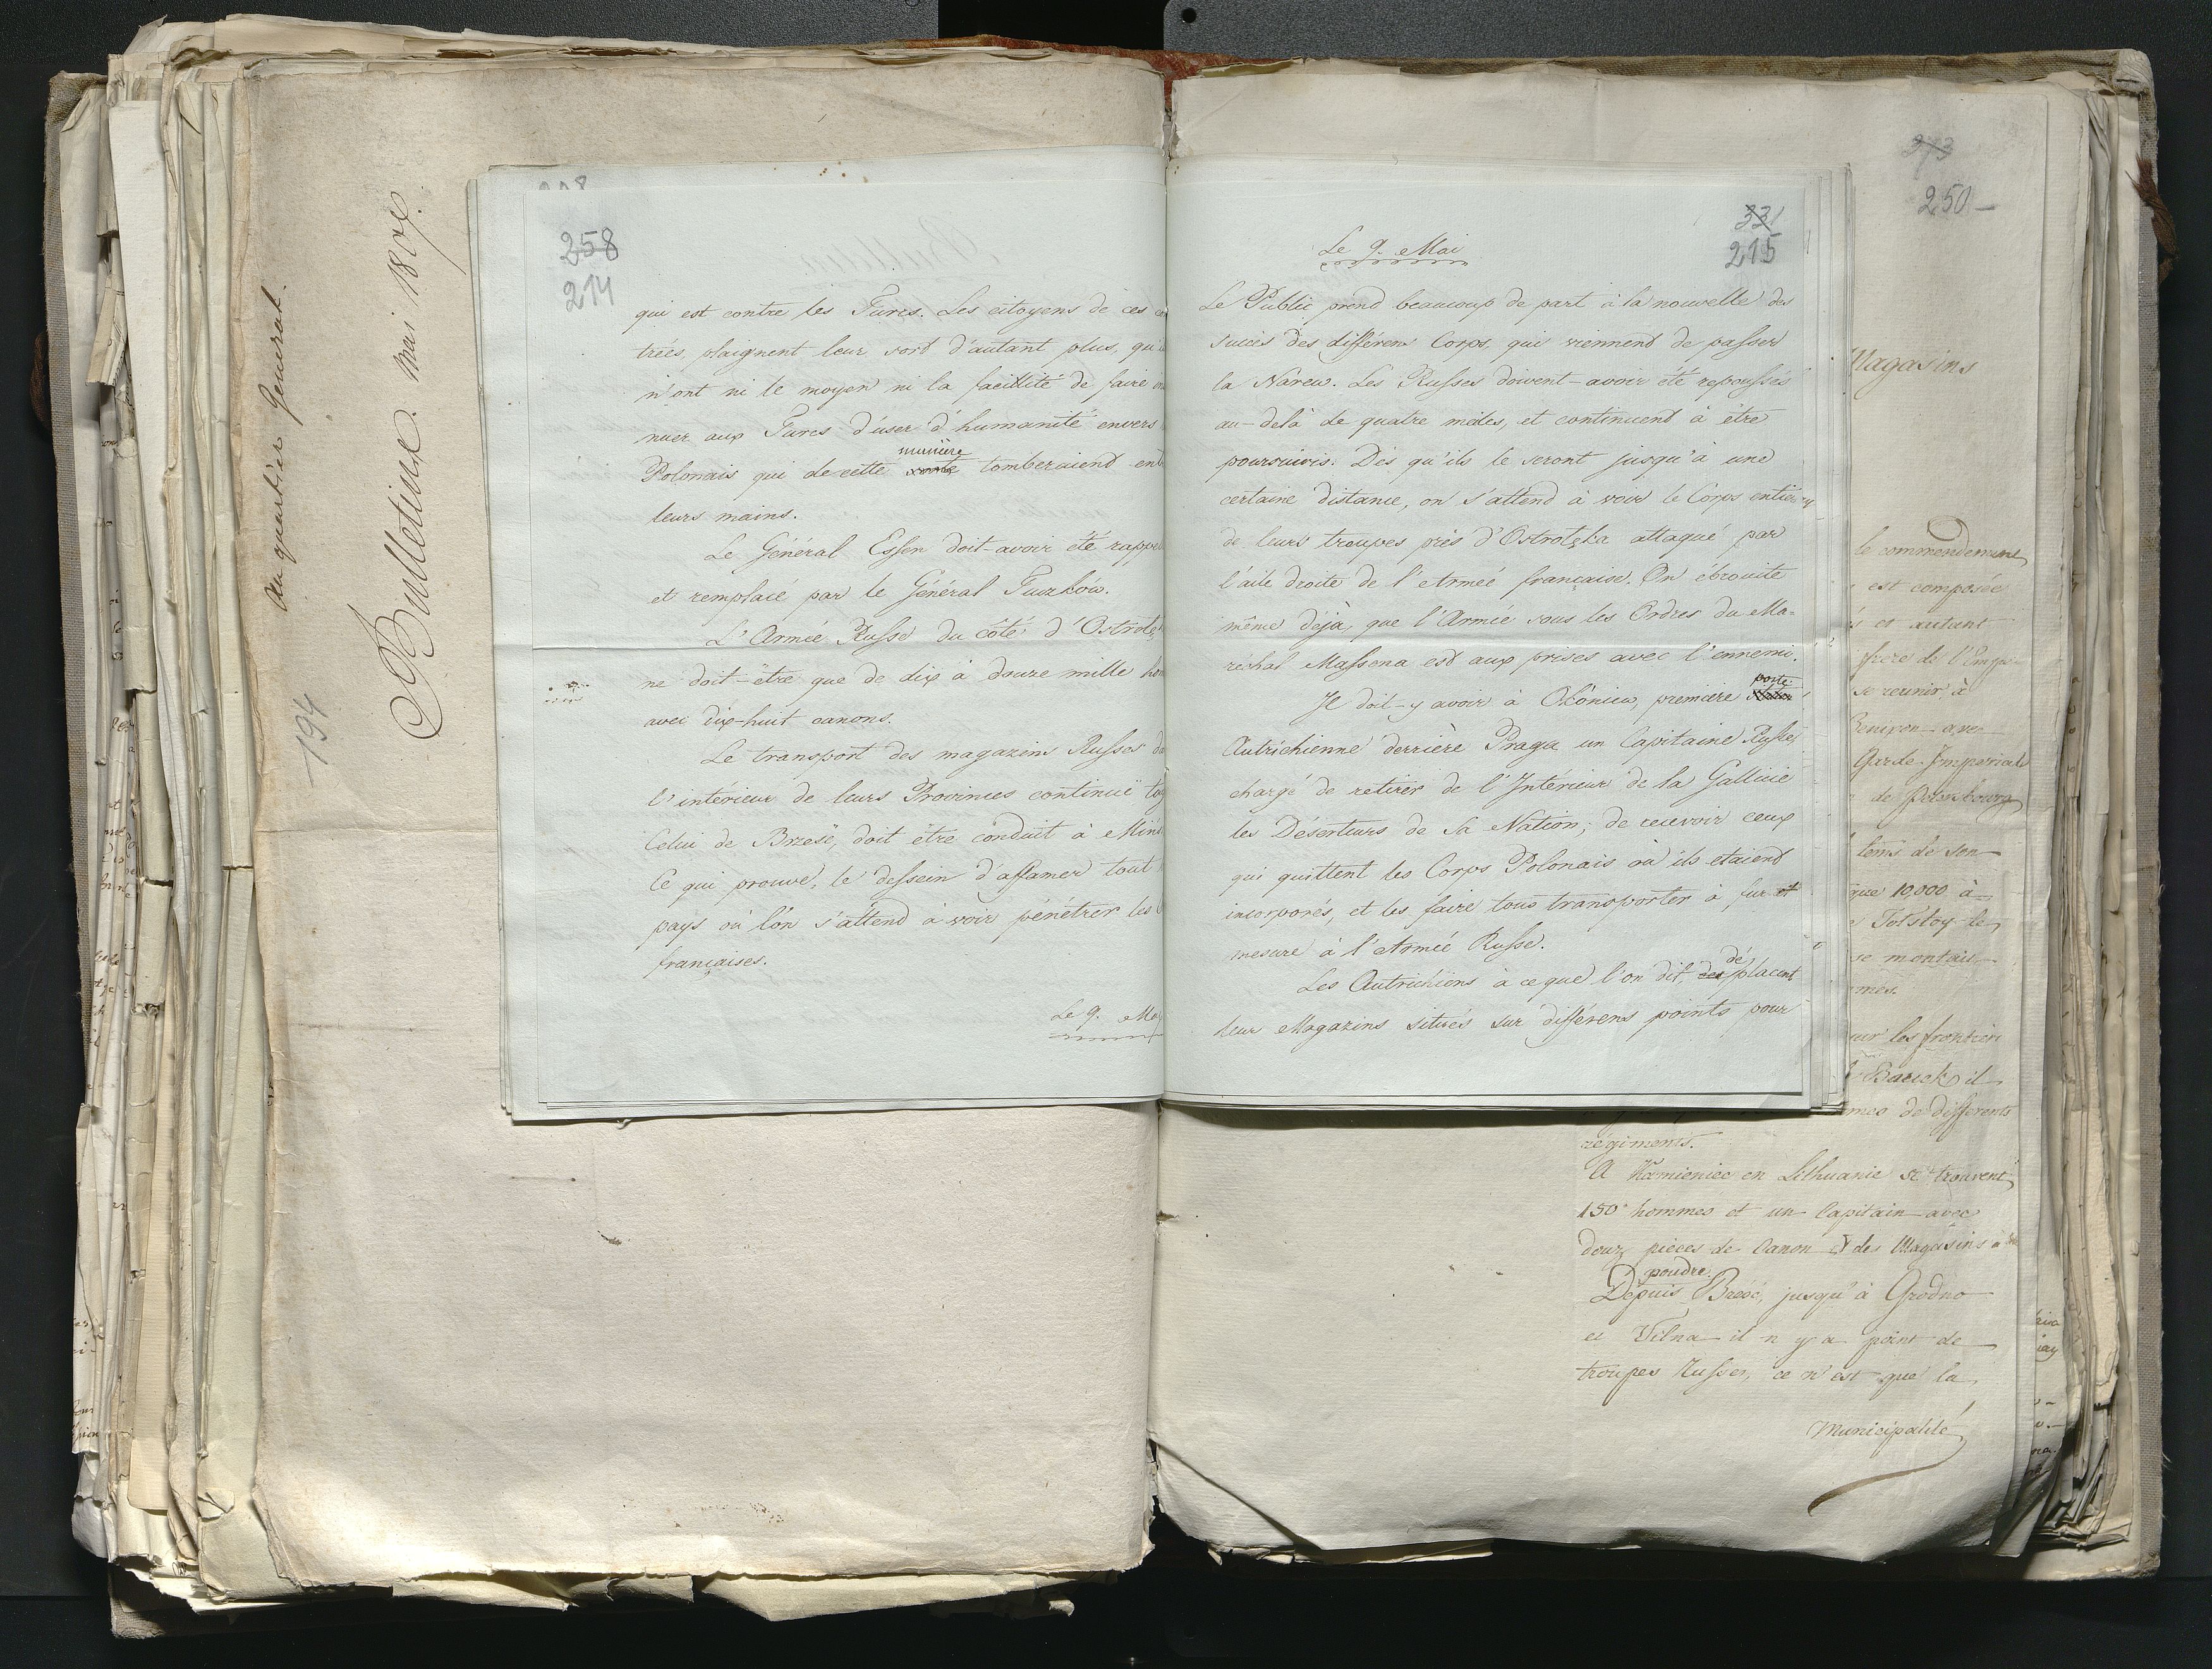 Au quartier General.
Bulletins. Mai 1807.
194
258
214
qui est contre les Turcs. Les citoyens de ces
trées, plaignent leur sort d'autant plus, qu'
n'ont ni le moyen ni la facilité de faire
nuer aux Turcs d'user d'humanité envers
manière
Polonais qui de cette sorte tomberaient
leurs mains.
Le Général Essen doit-avoir été rappe
et remplacé par le Général Tuzków.
L'Armée Russe du côté d'Ostrolę
ne doit-être que de dix à douze mille ho
avec dix-huit canons.
Le transport des magazins Russes
l'intérieur de leurs Provinces continuë
Celui de Brzesc, doit être conduit à Min
Ce qui prouve, le dessein d'affamer tout
pays où l'on s'attend à voir pénétrer les
françaises.
Le 9. Ma
331
215
Le 9. Mai
Le Public prend beaucoup de part à la nouvelle des
succès des différens Corps, qui viennent de passer
la Narew. Les Russes doivent-avoir été repoussés
au-delà de quatre milles, et continuent à être
poursuivis. Dès qu'ils le seront jusqu'à une
certaine distance, on s'attend à voir le Corps entier
de leurs troupes près d'Ostrołęka attaqué par
l'aile droite de l'Armée française. On ébruite
même déjà, que l'Armée sous les Ordres du Ma-
réchal Massena est aux prises avec l'ennemi.
poste
Il doit-y avoir à Okóniew, première
Autrichienne derrière Praga un Capitaine Russe
chargé de retirer de l'Intérieur de la Gallicie
les Déserteurs de sa Nation; de recevoir ceux
qui quittent les Corps Polonais où ils etaient
incorporés, et les faire tous transporter à fur et
mesure à l'Armée Russe.
dé
Les Autrichiens à ce que l'on dit, des placent
leurs Magazins situés sur différens points pour
273
250
Magasins
le commendement
est composée
et autant
frere de l'Empe-
se reunir à
Garde-Imperiale
de Petersbourg
tems de son
que 10,000 à
Tolstoy le
se montait
mes.
sur les frontièr
il
mes de differents
régiments.
A Kamieniec en Lithuanie se trouvent
150 hommes et un Capitain avec
douz pièces de Canon et des Magasins à
poudre.
Dépuis Brzesc, jusqu'à Grodno
et Vilna il n'y a point de
troupes Russes, ce n'est que la
Municipalité